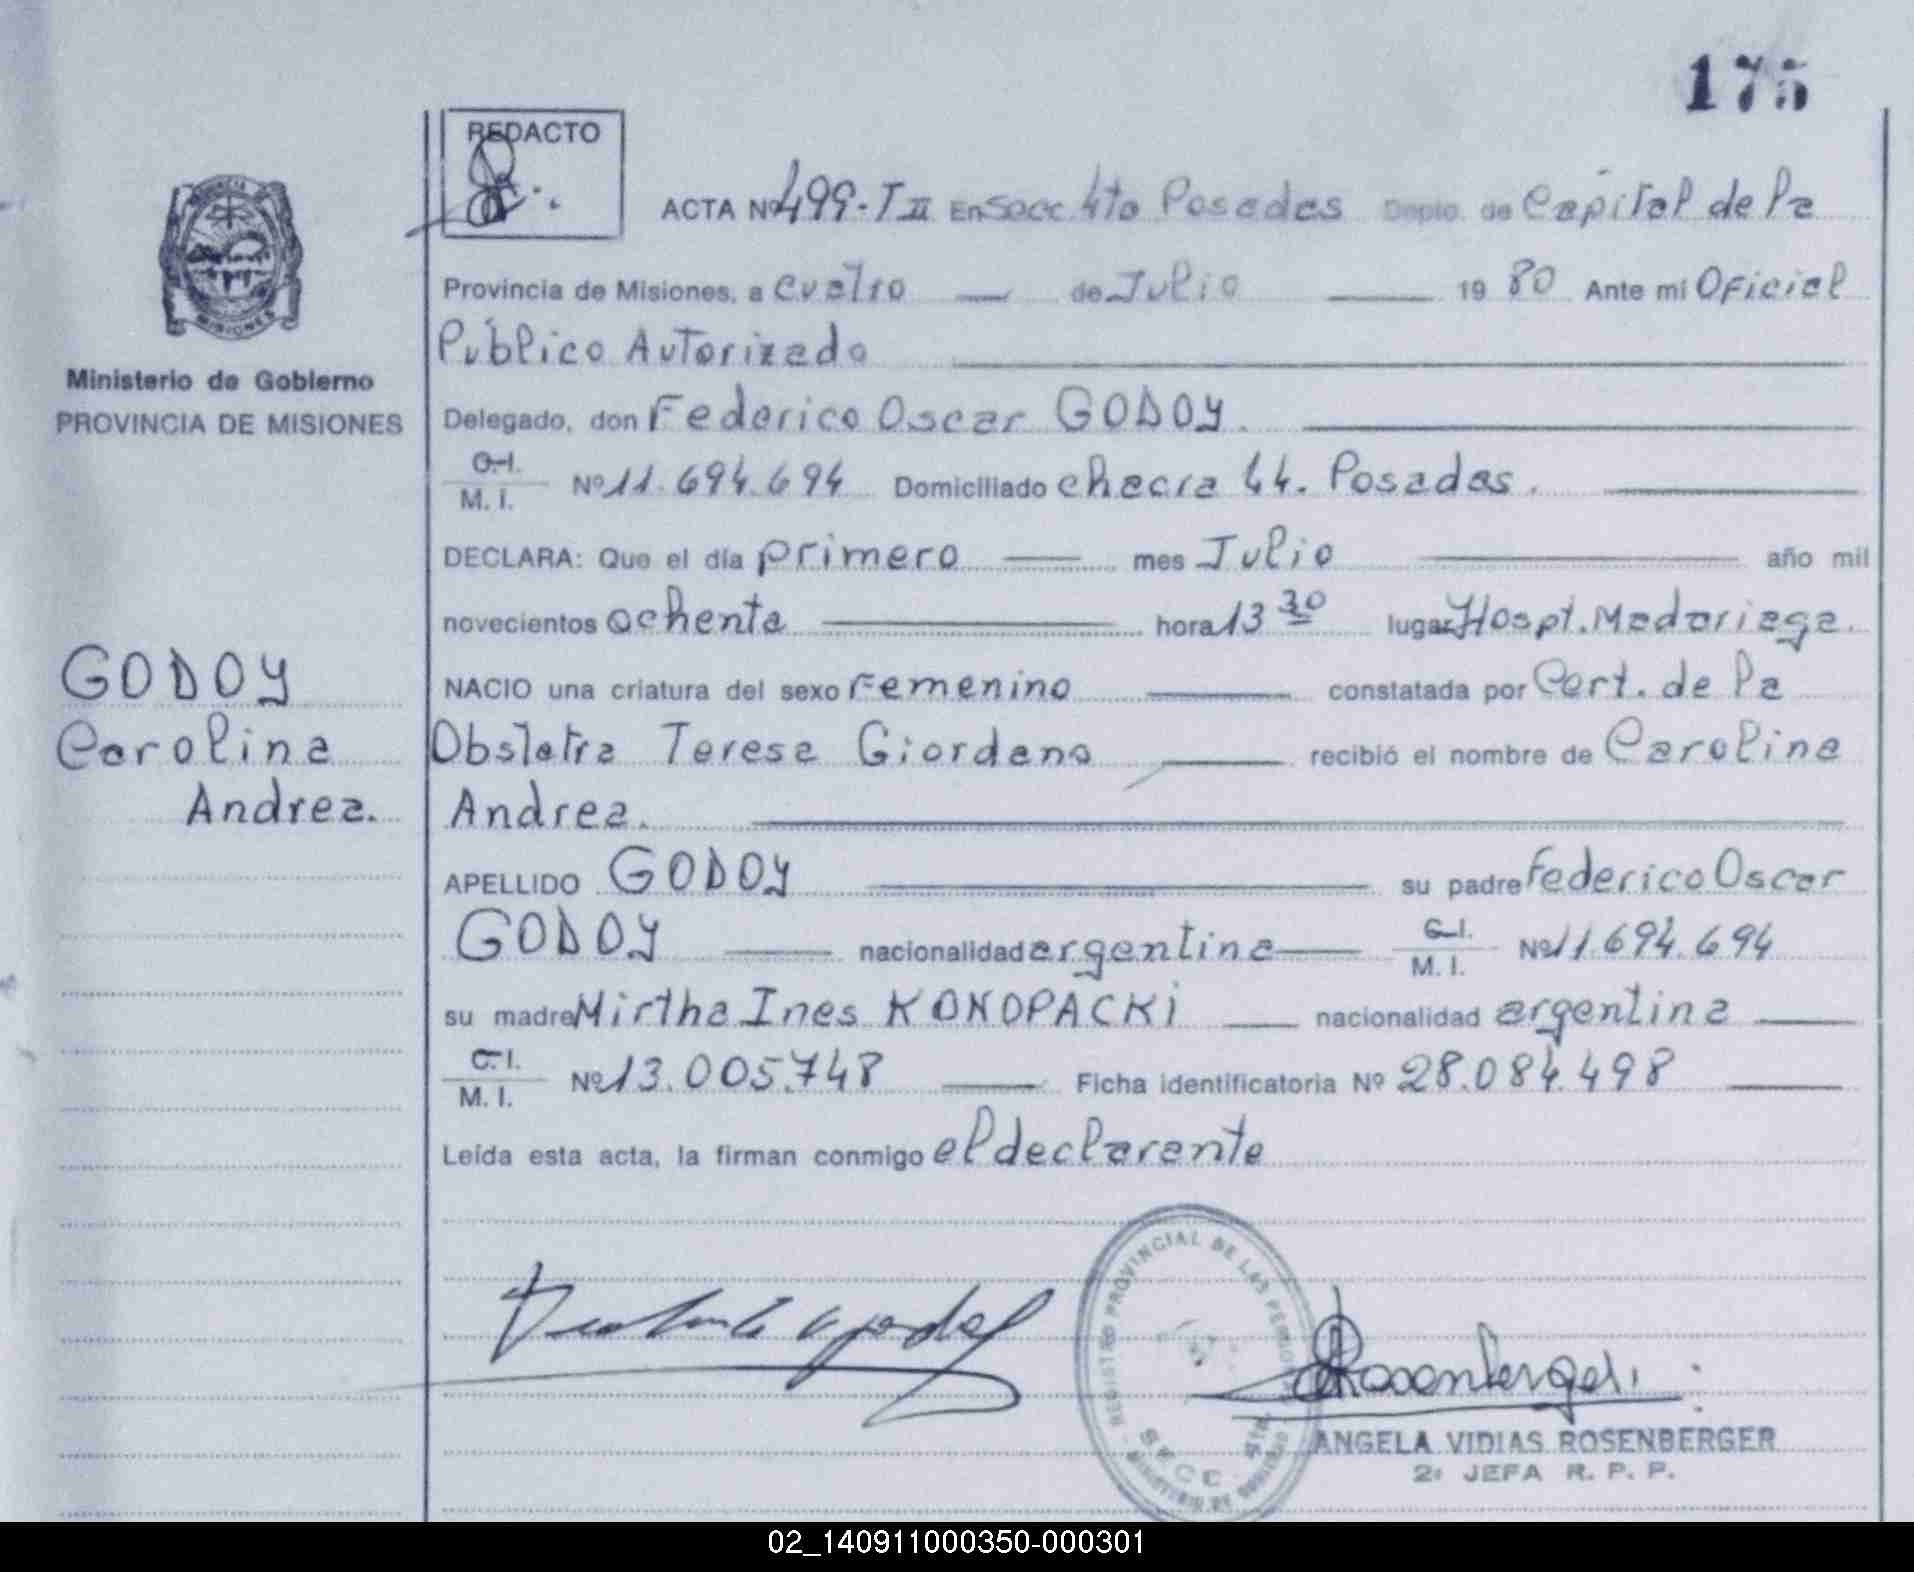 175
REDACTO
ACTA Nº 499-T II En Secc 4to Posadas Depto. de Capital de la
Provincia de Misiones, a cuatro de Julio 19 80 Ante mi Oficial
Público Autorizado
Ministerio de Gobierno
PROVINCIA DE MISIONES
Delegado, don Federico Oscar GODOY.
C.I.
M. I. Nº 11.694.694 Domiciliado chacra 44. Posadas.
DECLARA: Que el día primero mes Julio año mil
novecientos ochenta hora 13 30 lugar Hospt. Madariaga.
GODOY
Carolina
Andrea.
NACIO una criatura del sexo Femenino constatada por Cert. de la
Obstetra Teresa Giordano recibió el nombre de Carolina
Andrea.
APELLIDO GODOY su padre Federico Oscar
GODOY nacionalidad argentina C.I. M. I. Nº 11.694.694
su madre Mirtha Ines KONOPACKI nacionalidad argentina
C.I.
M. I. Nº 13.005.748 Ficha identificatoria Nº 28.084.498
Leída esta acta, la firman conmigo el declarante
REGISTRO PROVINCIAL DE LAS PERSONAS
SECC. 4to.
Rosenberger
ANGELA VIDIAS ROSENBERGER
2ª JEFA R. P. P.
02_140911000350-000301